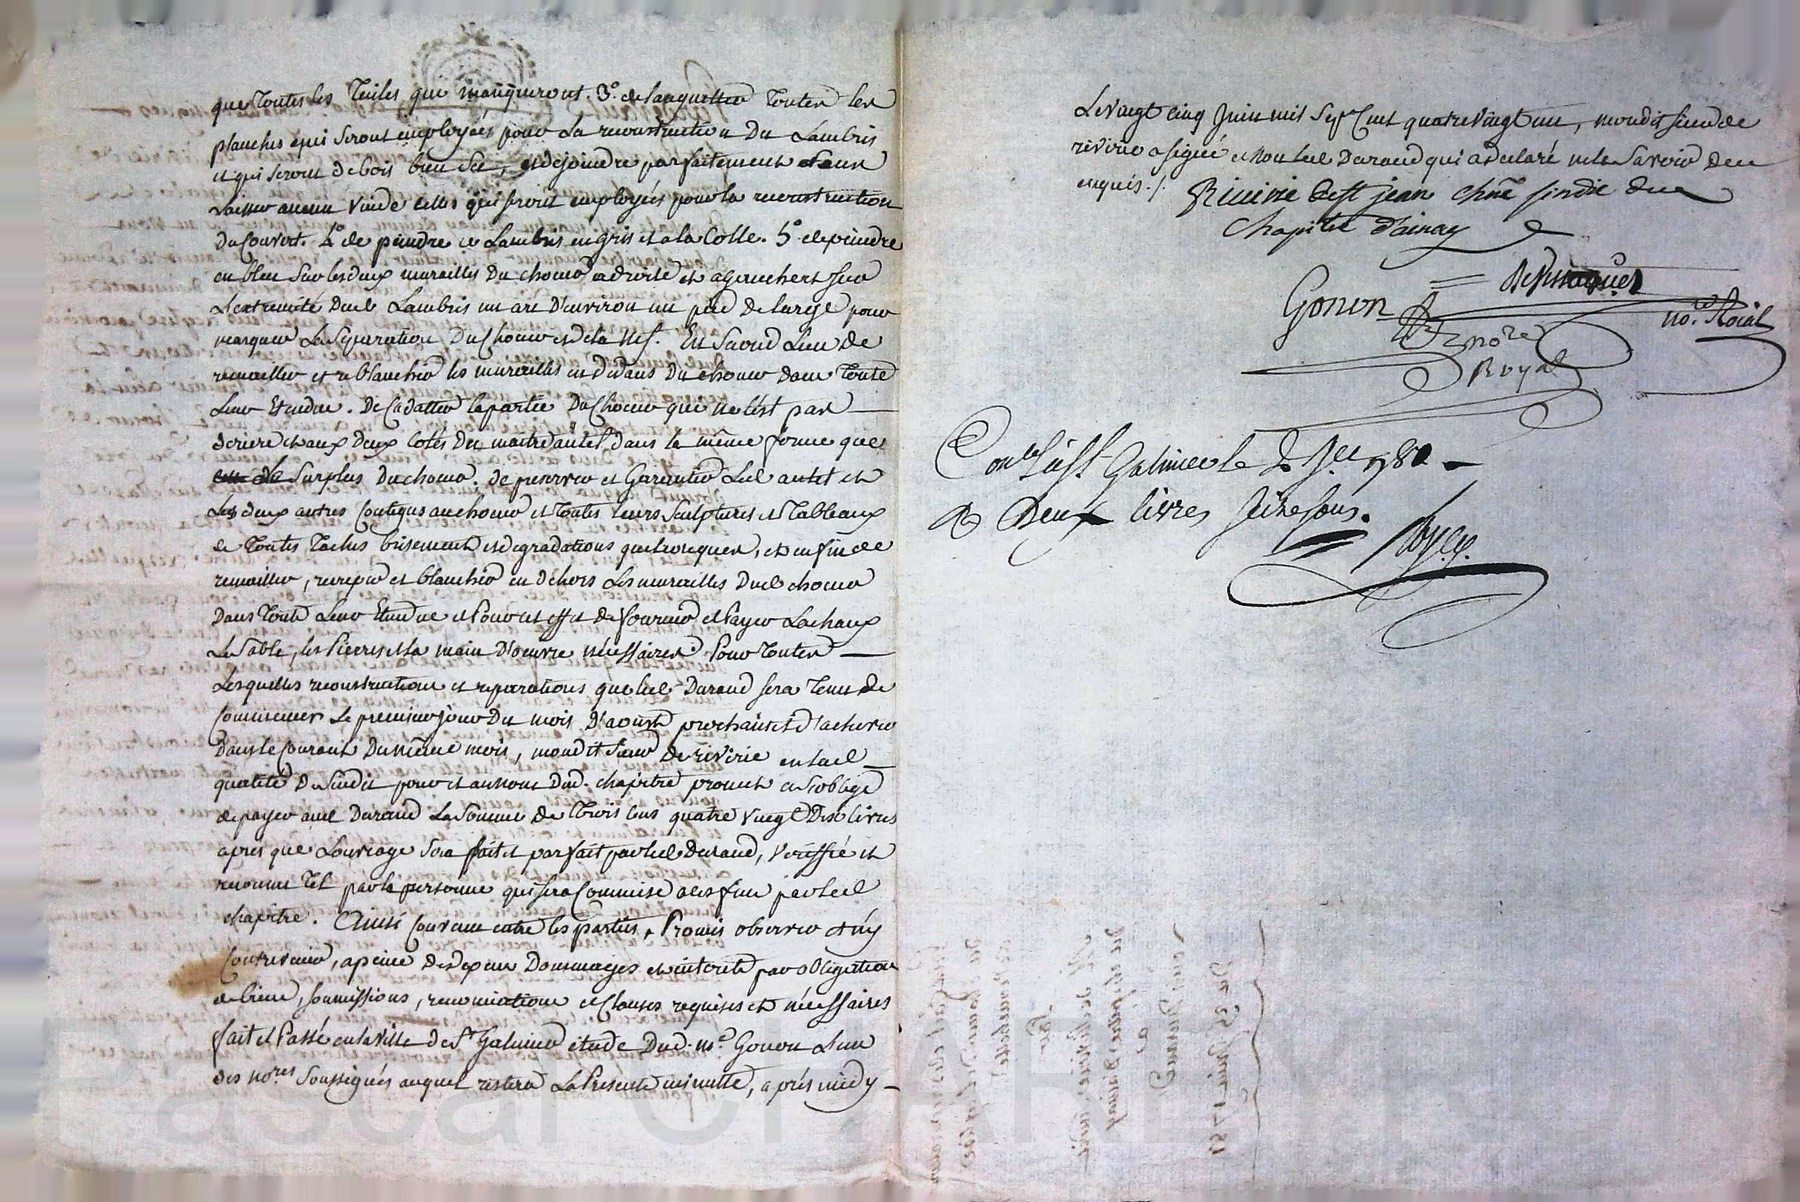 que Toutes les Tuiles que manqueront. 3.° de languetter Toutes les
planches qui seront employées pour La reconstruction Du Lambris
et qui seront de bois bien sec, et de joindre parfaitement et sans
Laisser aucun vuide celles qui seront employées pour la reconstruction
Du Couvert. 4.° de peindre ce Lambris en gris et a la Colle. 5.° de peindre
en bleu sur les deux murailles Du choeur a droite et a gauche et sur
L'extremité Dud. Lambris un arc D'environ un pied de large pour
marquer La Separation Du Choeur et de la Nef. En Second Lieu de
remailler et reblanchir les murailles en dedans Du choeur dans Toute
Leur Etendue. De Cadatter la partie Du Choeur que ne l'est pas
derriere et aux Deux Cotés du maitre autel Dans la même forme que
Le Surplus Du choeur. de preserver et Garantir Led. autel et
Les deux autres Contigus au choeur et Toutes Leurs sculptures et Tableaux
de Toutes Taches brisements et degradations quelconques, et enfin de
remailler, recrepir et blanchir en dehors Les murailles Dud. choeur
Dans Toute Leur Etendue et Pour cet effet de fournir et Payer La chaux
Le Sable, les Pierres et la main D'oeuvre nécessaires Pour Toutes
Lesquelles reconstructions et reparations que led. Durand sera Tenu de
Commencer Le premier jour Du mois D'aoust prochain et D'achever
Dans le Courant Du même mois, mondit Sieur De riverie en lad.
qualité De Sindic pour et au nom Dud. chapitre promet et s'oblige
de payer aud. Durand La Somme de Trois Cens quatre vingt Dix livres
après que L'ouvrage Sera fait et parfait par led. Durand, veriffié et
reconnu Tel par la personne qui sera Commise a ces fins par led.
chapitre. Ainsi Convenu entre les parties, Promis observer et n'y
Contrevenir, a peine de depens Dommages et interets par obligation
de biens, soumissions, renonciations et Clauses requises et nécessaires
fait et Passé en la ville de St. Galmier etude Dud. me. Gonon L'un
des no.res Soussignés auquel restera La Presente minutte, après midy
Le vingt cinq Juin mil Sept Cent quatrevingt un, mondit sieur de
riverie a signé et non led. Durand qui a declaré ne le Savoir de ce
enquis ./.
Riverie de st jean chne sindic du
Chapitre d'ainay
Gonon
no.re
Royal
no.re Roial
Con.le a St. Galmier le 2
Deux livres seize sous.
Du 25 Juin 1781